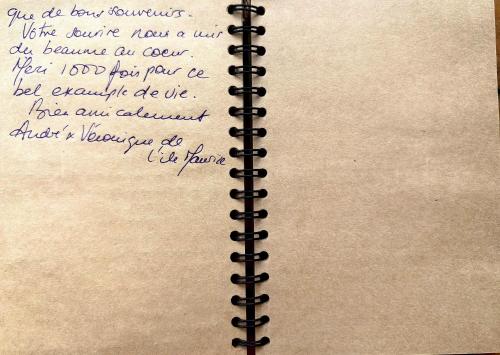 que de bons souvenirs.
Votre sourire nous a mis
du beaume au coeur.
Merci 1000 fois pour ce
bel example de vie.
Bien amicalement
André & Véronique de
L'ile Maurice